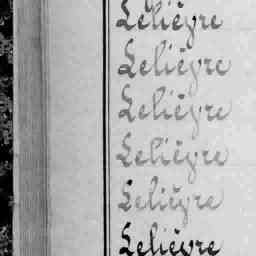 Lelièvre
Lelièvre
Lelièvre
Lelièvre
Lelièvre
Lelièvre